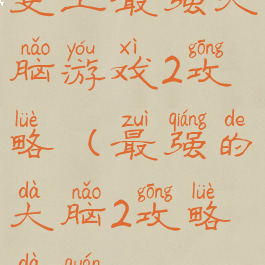 史上最强大
nǎo yóu xì gōng
脑游戏2攻
lüè zuì qiáng de
略（最强的
dà nǎo gōng lüè
大脑2攻略
dà quán